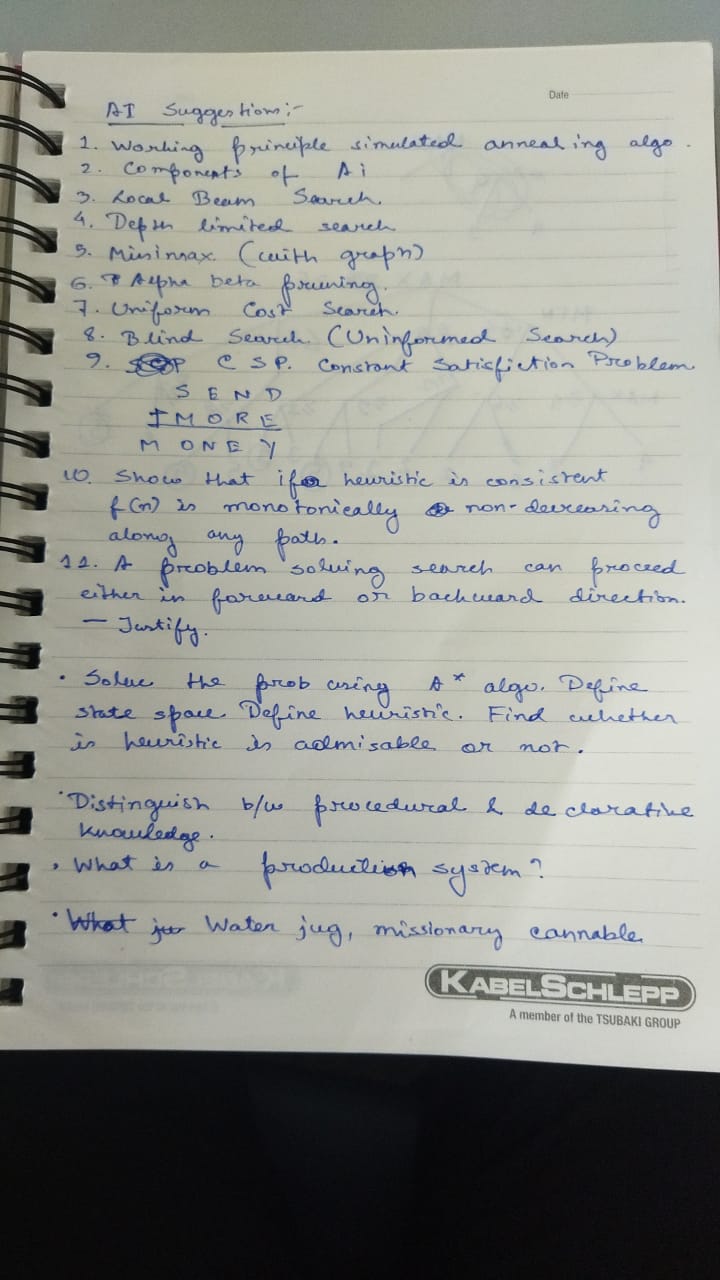 Date
AI Suggestions:-
1. Working principle simulated annealing algo.
2. Components of Ai
3. Local Beam Search.
4. Depth limited search
5. Minimax. (with graph)
6. Alpha beta pruning.
7. Uniform Cost Search.
8. Blind Search. (Uninformed Search)
9. CSP. Constant Satisfiction Problem.
S E N D
+ M O R E
M O N E Y
10. Show that if heuristic is consistent
f(n) is monotonically non-decreasing
along any path.
11. A problem solving search can proceed
either in foreward or backward direction.
— Justify.
• Solve the prob using A* algo. Define
state space. Define heuristic. Find whether
is heuristic is admisable or not.
• Distinguish b/w procedural & declarative
knowledge.
• What is a production system?
• What Water jug, missionary cannable
KABELSCHLEPP
A member of the TSUBAKI GROUP